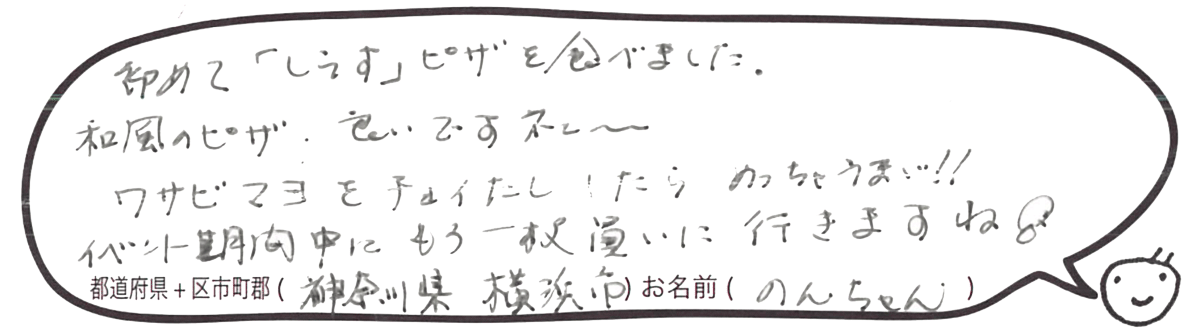 初めて「しらす」ピザを食べました.
和風のピザ. 良いですネ〜
ワサビマヨをチョイたししたら めっちゃうまい!!
イベント期間中にもう一枚買いに行きますね
都道府県+区市町郡(神奈川県 横浜市) お名前(のんちゃん)